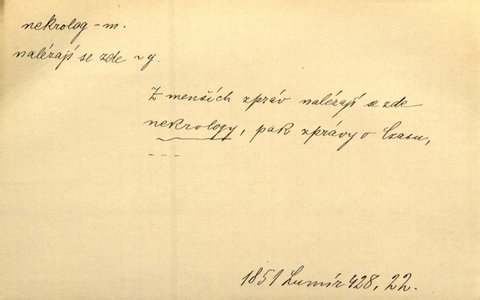 nekrolog -m.
nalézají se zde ~y.
Z menších zpráv nalézají se zde
nekrology, pak zprávy o času,
---
1851 Lumír 428, 22.